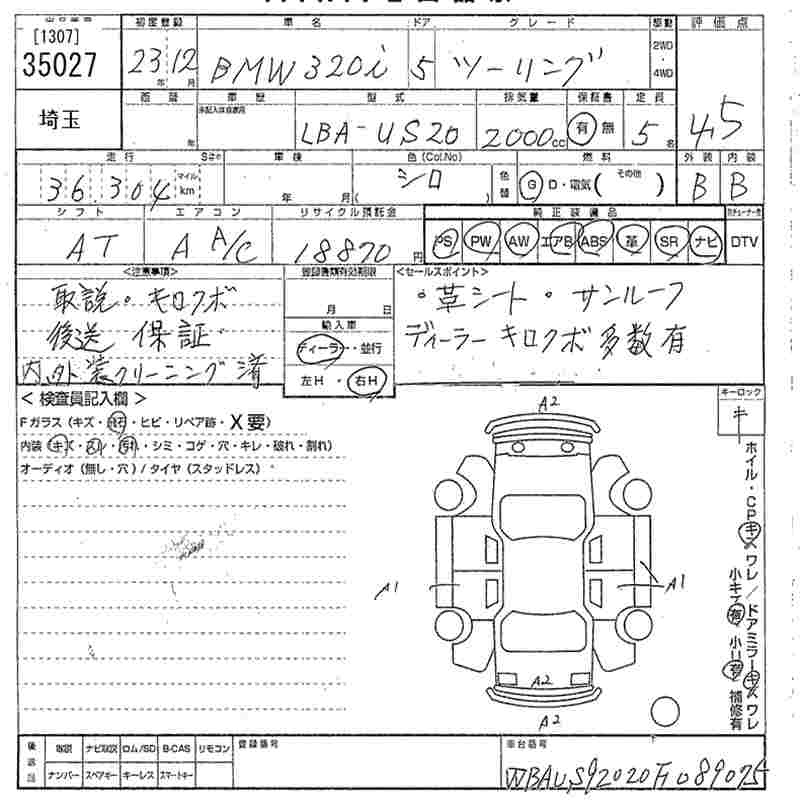 [1307]
35027
初度登録 車名 ドア グレード 駆動 評価点
23 12 BMW 320i 5 ツーリング 2WD・4WD 4.5
年 月
埼玉
車歴 型式 排気量 保証書 定員
LBA-US20 2000cc 有 無 5名
走行 車検 色(Col.No) 燃料 外装 内装
36,304 マイル km 年 月 シロ ( ) 色替 G D・電気( その他 ) B B
シフト エアコン リサイクル預託金 純正装備品
AT A A/C 18870円 PS PW AW エアB ABS 革 SR ナビ DTV
<注意事項> <セールスポイント>
取説・キロクボ
後送 保証
内外装クリーニング済
月 日
輸入車
ディーラー・並行
左H・右H
・革シート・サンルーフ
ディーラー キロクボ 多数有
<検査員記入欄>
Fガラス(キズ・飛石・ヒビ・リペア跡・X要)
内装(キズ・スリ・汚れ・シミ・コゲ・穴・キレ・破れ・割れ)
オーディオ(無し・穴)/タイヤ(スタッドレス)
キーロック
キ
A2
A1 A1
A2
A2
ホイル・CPキズワレ/ドアミラーキズワレ
小キズ有 小凹有 補修有
後送品 取説 ナビ取説 ロム/SD B-CAS リモコン 登録番号 車台番号
ナンバー スペアキー キーレス スマートキー WBAUS92020F089075